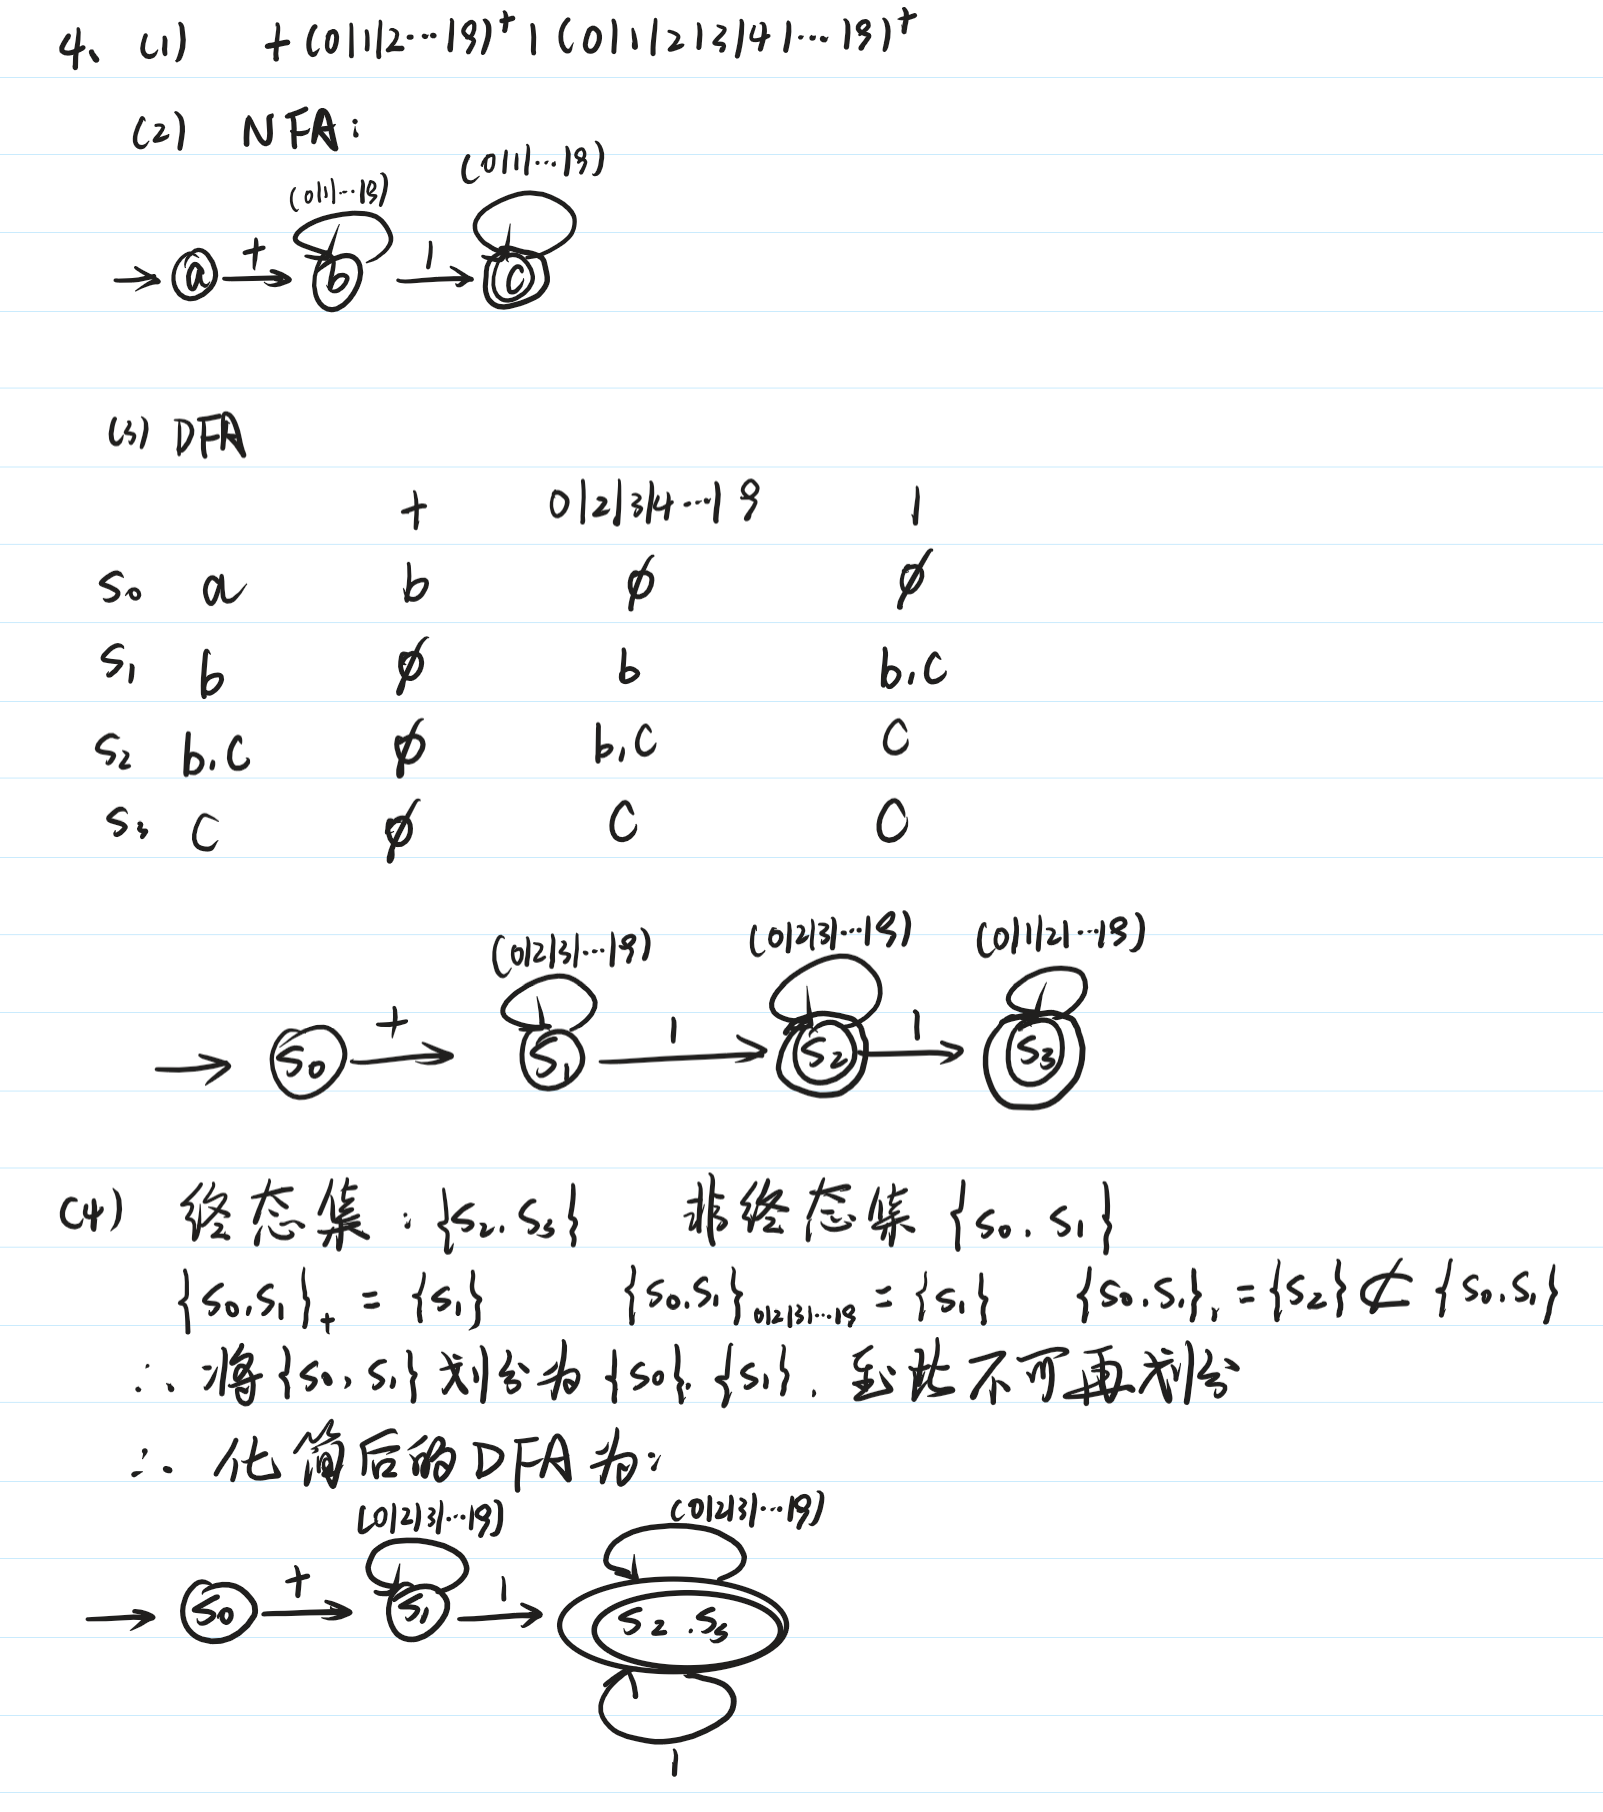 4、(1) +(0|1|2…|9)⁺1(0|1|2|3|4|…|9)⁺
(2) NFA:
(0|1|…|9) (0|1|…|9)
→ a + b 1 c
(3) DFA
+ 0|2|3|4…|9 1
S₀ a b ∅ ∅
S₁ b ∅ b b,c
S₂ b,c ∅ b,c c
S₃ c ∅ c c
(0|2|3|…|9) (0|2|3|…|9) (0|1|2|…|9)
→ S₀ + S₁ 1 S₂ 1 S₃
(4) 终态集:{S₂.S₃} 非终态集{S₀.S₁}
{S₀,S₁}₊ = {S₁} {S₀.S₁}₀|₂|₃|…|₉ = {S₁} {S₀.S₁}₁ = {S₂} ⊄ {S₀.S₁}
∴ 将{S₀,S₁}划分为{S₀}.{S₁}. 到此不可再划分
∴ 化简后的DFA为:
(0|2|3|…|9) (0|2|3|…|9)
→ S₀ + S₁ 1 S₂.S₃
1